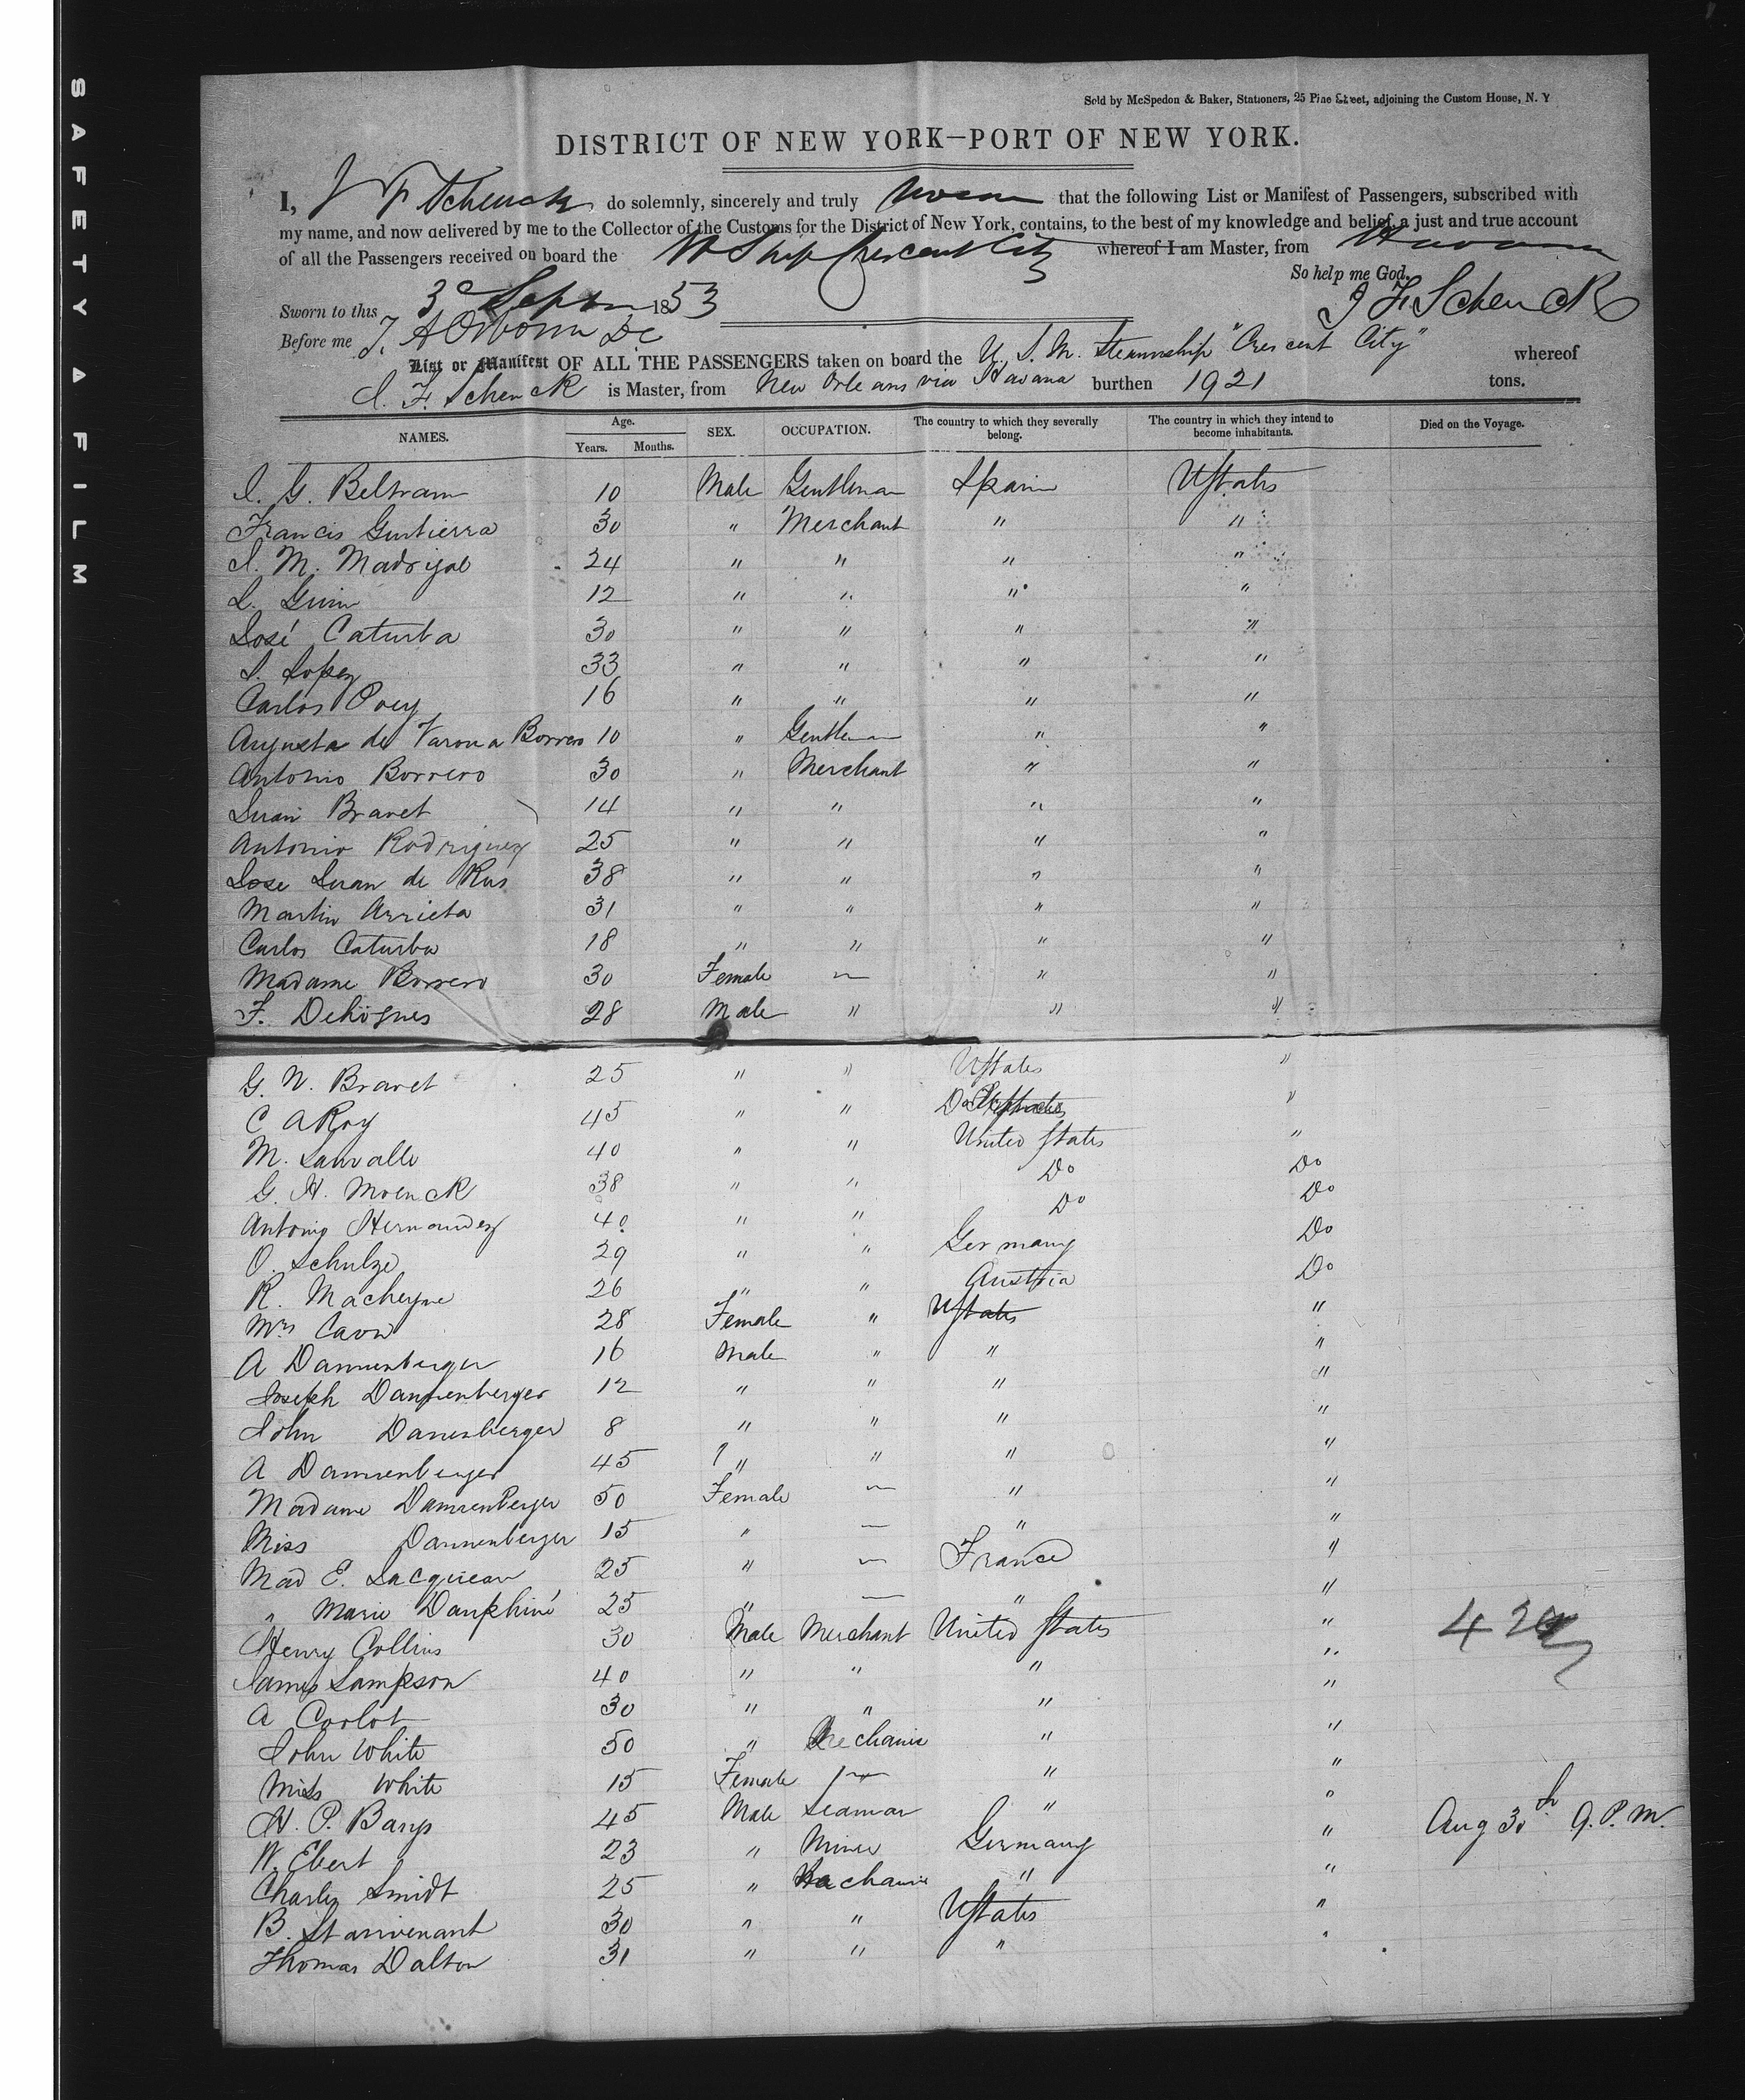 SAFETY A FILM
Sold by McSpedon & Baker, Stationers, 25 Pine Street, adjoining the Custom House, N. Y
DISTRICT OF NEW YORK—PORT OF NEW YORK.
I, J F Schenck do solemnly, sincerely and truly swear that the following List or Manifest of Passengers, subscribed with
my name, and now delivered by me to the Collector of the Customs for the District of New York, contains, to the best of my knowledge and belief, a just and true account
of all the Passengers received on board the St Ship Crescent City whereof I am Master, from Havana
So help me God.
Sworn to this 3d Septem 1853 J F Schenck
Before me
List or Manifest OF ALL THE PASSENGERS taken on board the U. S. M. Steamship "Crescent City" whereof
J. F. Schenck is Master, from New Orleans via Havana burthen 1921 tons.
NAMES. Age. Years. Months. SEX. OCCUPATION. The country to which they severally belong. The country in which they intend to become inhabitants. Died on the Voyage.
J. G. Beltram 10 Male Gentleman Spain UStates
Francis Guutierra 30 " Merchant " "
J. M. Madrigal 24 " " " "
L. Guim 12 " " " "
José Caturba 30 " " " "
J. Lopez 33 " " " "
Carlos Poey 16 " " " "
Augusta de Varona Borrero 10 " Gentleman " "
Antonio Borrero 30 " Merchant " "
Juan Bravet 14 " " " "
Antonio Rodriguez 25 " " " "
Jose Juan de Rus 38 " " " "
Martin Arrieta 31 " " " "
Carlos Caturba 18 " " " "
Madame Borrero 30 Female — " "
F. Dehögues 28 Male " " "
G. N. Bravet 25 " " UStates "
C A Roy 45 " " Do "
M. Sauvalle 40 " " United States "
G. H. Moenck 38 " " Do Do
Antonio Hernandez 40 " " Do Do
O. Schulze 29 " " Germany Do
R. Macheyne 26 " " Austria Do
Mrs Cavn 28 Female " UStates "
A Dannenberger 16 Male " " "
Joseph Dannenberger 12 " " " "
John Dannenberger 8 " " " "
A Dannenberger 45 " " " "
Madame Dannenberger 50 Female — " "
Miss Dannenberger 15 " — " "
Mad E. Lacquieau 25 " — France "
" Marie Dauphiné 25 " — " "
Henry Collins 30 Male Merchant United States "
James Sampson 40 " " " "
A Corlot 30 " " " "
John White 50 " Mechanic " "
Miss White 15 Female — " "
H. P. Bangs 45 Male Seaman " " Aug 30th 9. P. M.
W. Ebert 23 " Miner Germany "
Charles Smidt 25 " Mechanic " "
B. 30 " " UStates "
Thomas Dalton 31 " " " "